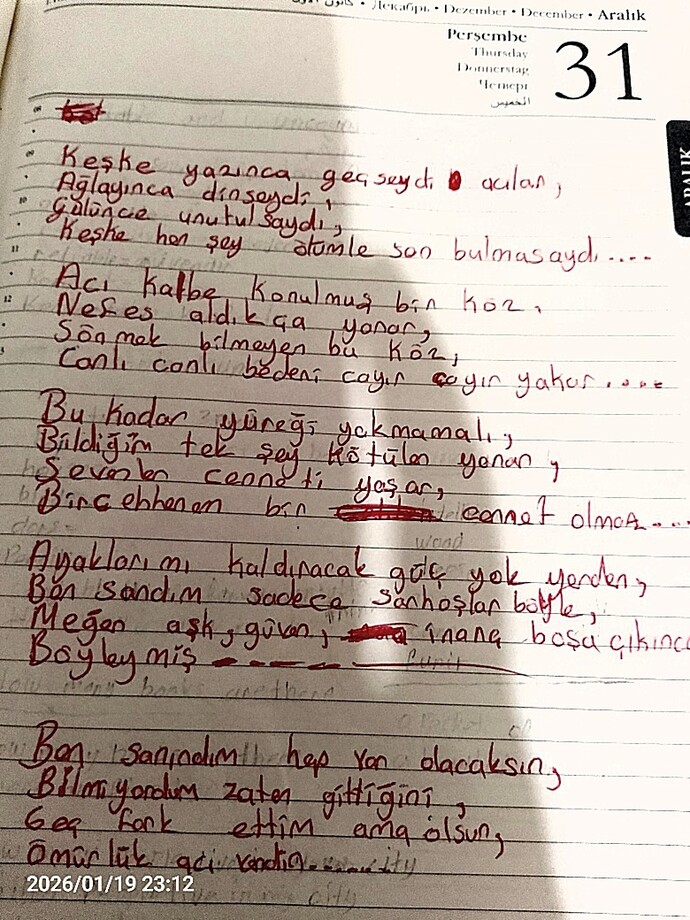 • Декабрь • Dezember • December • Aralık
Perşembe
Thursday
Donnerstag
Четверг
الخميس
31
ARALIK
08
09
Keşke yazınca geçseydi acılar,
Ağlayınca dinseydi,
10
Gülünce unutulsaydı,
Keşke her şey ölümle son bulmasaydı....
11
Acı kalbe konulmuş bir köz,
12
Nefes aldıkça yanar,
Sönmek bilmeyen bu köz,
Canlı canlı bedeni cayır cayır yakar....
Bu kadar yüreği yakmamalı,
Bildiğim tek şey kötüler yanar,
Sevenler cenneti yaşar,
Bir cehhenem bir cennet olmaz....
word
Ayaklarımı kaldıracak güç yok yerden,
Ben sandım sadece sarhoşlar böyle,
Meğer aşk, güven, inanç boşa çıkınca
Böyleymiş ----
Ben sanırdım hep var olacaksın,
Bilmiyordum zaten gittiğini,
Geç fark ettim ama olsun,
Ömürlük acı verdin.......
city
city
2026/01/19 23:12